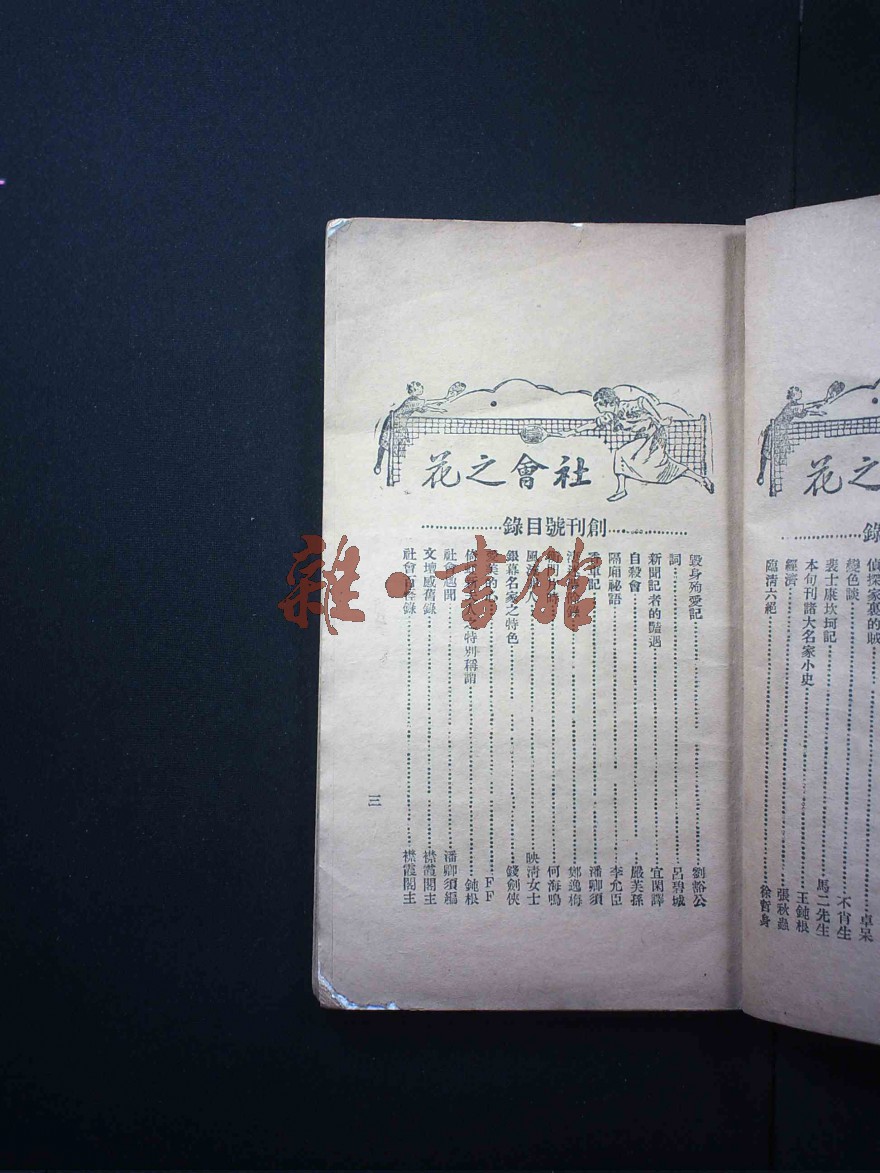 社會之花
創刊號目錄
毀身殉愛記 劉豁公
詞 呂碧城
新聞記者的豔遇 宜閑譯
自殺會 嚴芙孫
隔廂祕語 李允臣
潘卿須
鄭逸梅
何海鳴
映清女士
銀幕名家之特色 錢劍俠
FF
之特別稱謂 鈍根
社會趣聞 潘卿須編
文壇感舊錄 襟霞閣主
社會百怪錄 襟霞閣主
三
花之
錄
偵探家裏的賊 卓呆
變色談 不肖生
裴士康坎坷記 馬二先生
本旬刊諸大名家小史 王鈍根
經濟 張秋蟲
臨清六絕 徐哲身
雜·書館